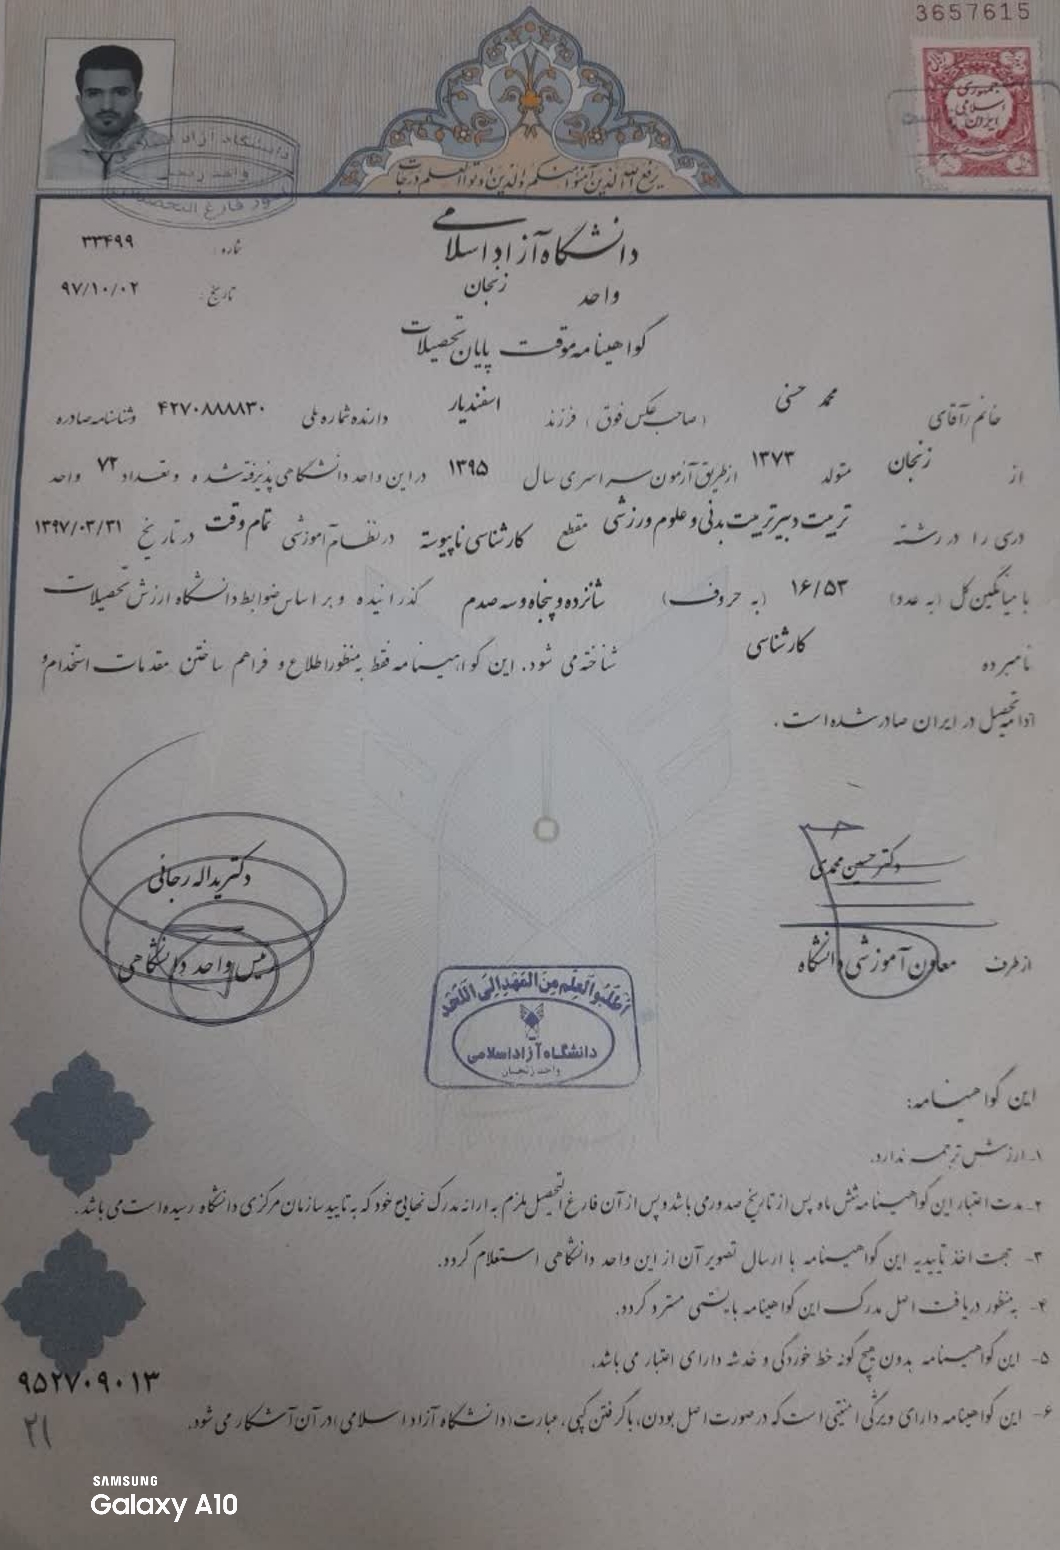 3657615
جمهوری
اسلامی
ایران
دانشگاه آزاد اسلامی
واحد زنجان
یرفع الله الذین آمنوا منکم والذین اوتوا العلم درجات
دانشگاه آزاد اسلامی
شماره: ۳۳۴۹۹
واحد زنجان
تاریخ: ۹۷/۱۰/۰۲
گواهینامه موقت پایان تحصیلات
خانم/آقای محمد حسنی (صاحب عکس فوق) فرزند اسفندیار دارنده شماره ملی ۴۲۷۰۸۸۸۸۳۰ وشناسنامه صادره
از زنجان متولد ۱۳۷۳ از طریق آزمون سراسری سال ۱۳۹۵ در این واحد دانشگاهی پذیرفته شده و تعداد ۷۲ واحد
درسی را در رشته تربیت دبیر تربیت بدنی و علوم ورزشی مقطع کارشناسی ناپیوسته در نظام آموزشی تمام وقت در تاریخ ۱۳۹۷/۰۳/۳۱
با میانگین کل (به عدد) ۱۶/۵۳ (به حروف) شانزده و پنجاه و سه صدم گذرانیده و بر اساس ضوابط دانشگاه ارزش تحصیلات
نامبرده کارشناسی شناخته می شود. این گواهینامه فقط به منظور اطلاع و فراهم ساختن مقدمات استخدام و
ادامه تحصیل در ایران صادر شده است.
دکتر حسین محمدی
دکتر یداله رجائی
از طرف معاون آموزشی دانشگاه
رئیس واحد دانشگاهی
اُطلُبُوا العِلمَ مِنَ المَهدِ اِلَی اللَّحَد
دانشگاه آزاد اسلامی
واحد زنجان
این گواهینامه:
۱- ارزش ترجمه ندارد.
۲- مدت اعتبار این گواهینامه شش ماه پس از تاریخ صدور می باشد و پس از آن فارغ التحصیل ملزم به ارائه مدرک نهایی خود که به تایید سازمان مرکزی دانشگاه رسیده است می باشد.
۳- جهت اخذ تاییدیه این گواهینامه با ارسال تصویر آن از این واحد دانشگاهی استعلام گردد.
۴- به منظور دریافت اصل مدرک این گواهینامه بایستی مسترد گردد.
۵- این گواهینامه بدون هیچ گونه خط خوردگی و خدشه دارای اعتبار می باشد.
۶- این گواهینامه دارای ویژگی امنیتی است که در صورت اصل بودن، با گرفتن کپی، عبارت (دانشگاه آزاد اسلامی) در آن آشکار می شود.
۹۵۲۷۰۹۰۱۳
۲۱
SAMSUNG
Galaxy A10